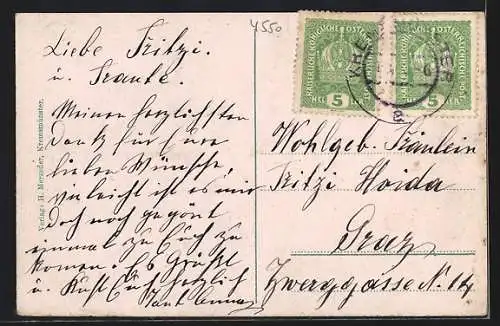 4550
Liebe Fritzi
u. Trante.
Meinen herzlichsten
Dank für Eure
lieben Wünsche,
vielleicht ist es mir
doch noch gegönt
einmal zu Euch zu
komen. Es Grüßt
u. Küßt Euch herzlich
Tant Emma
Verlag: H. Kremsmünster.
KAISERLICHE KÖNIGLICHE ÖSTERREICHISCHE POST
5
HELLER
KAISERLICHE KÖNIGLICHE ÖSTERREICHISCHE POST
5
HELLER
Wohlgeb. Fräulein
Fritzi Hoida
Graz
Zwerggasse N. 14